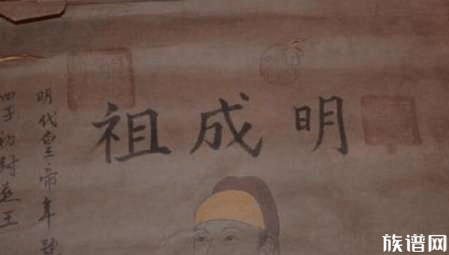 明成祖
明代皇帝年號
四子初封燕王
族谱网